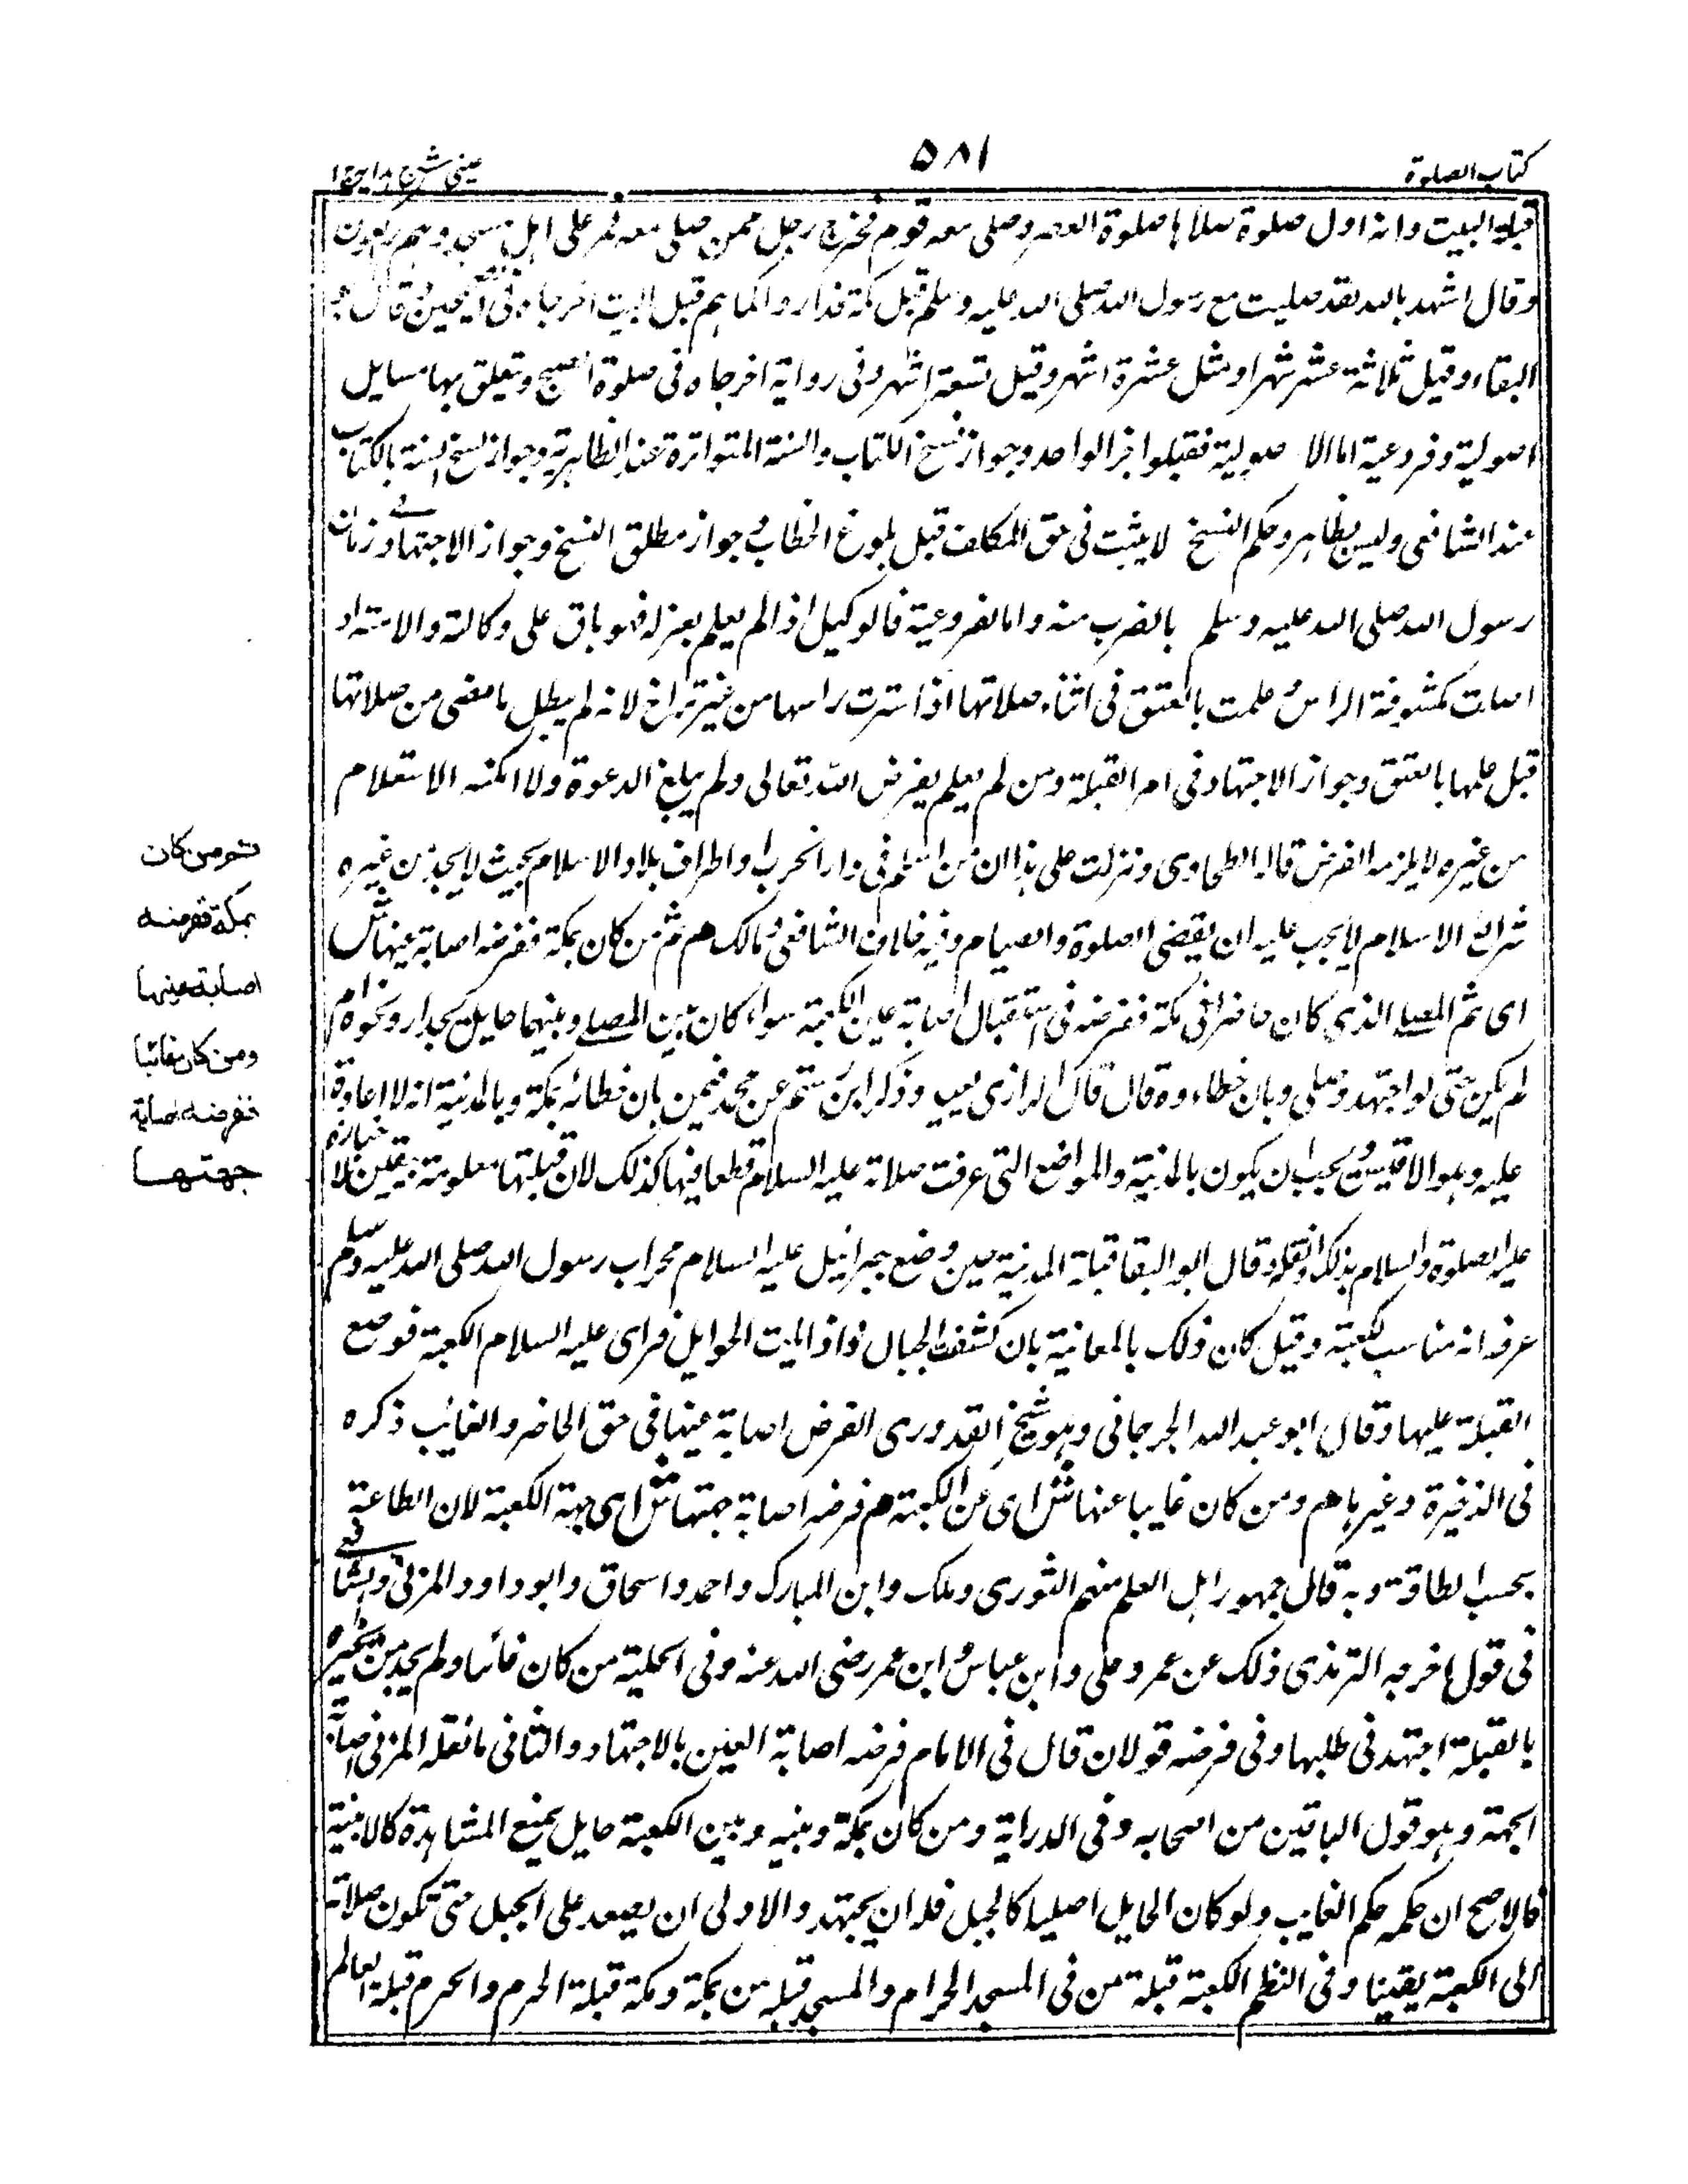 كتاب الصلوة
٥٨١
عينى شرح هداية ج ا
قبلة البيت وانه اول صلوة صلاها صلوة العصر وصلى معه قوم فخرج رجل ممن صلى معه فمر على اهل مسجد وهم راكعون
وقال اشهد بالله لقد صليت مع رسول الله صلى الله عليه وسلم قبل مكة فداروا كما هم قبل البيت اخرجاه فى الصحيحين وقال ابو
البقاء وقيل ثلاثة عشر شهرا وقيل عشرة اشهر وقيل تسعة اشهر وفى رواية اخرجاه فى صلوة الصبح وتتعلق بها مسايل
اصولية وفروعية اما الاصولية فقبلوا خبر الواحد وجواز نسخ الكتاب والسنة المتواترة عند الظاهرية وجواز نسخ السنة بالكتاب
عند الشافعى وليس بظاهر وحكم النسخ لا يثبت فى حق المكلف قبل بلوغ الخطاب وجواز مطلق النسخ وجواز الاجتهاد فى زمان
رسول الله صلى الله عليه وسلم بالقرب منه واما الفروعية فالوكيل اذا لم يعلم بعزله فهو باق على وكالته والامة اذ
اصلت مكشوفة الراس وعلمت بالعتق فى اثناء صلاتها اذا سترت راسها من غير تراخ لانه لم يبطل ما مضى من صلاتها
قبل علمها بالعتق وجواز الاجتهاد فى امر القبلة ومن لم يعلم بفرض الله تعالى ولم يبلغ الدعوة ولا امكنه الاستعلام
من غيره لا يلزمه الفرض قاله الطحاوى ونزلت على هذا ان من اسلم فى دار الحرب او اطراف بلاد الاسلام بحيث لا يجد من غيره
شرائع الاسلام لا يجب عليه ان يقضى الصلوة والصيام وفيه خلاف الشافعى ومالك هم ثم من كان بمكة ففرضه اصابة عينها ش
اى ثم المصلى الذى كان حاضرا فى مكة ففرضه فى استقبال اصابة عين الكعبة سواء كان بين المصلى وبينهما حايل كجدار ونحوه ام
لم يكن حتى لو اجتهد وصلى وبان خطاءوه قال قال الرازى يعيد وذكر ابن رستم عن محمد فيمن بان خطائه بمكة وبالمدينة انه لا اعادة
عليه وهو الاقيس ويجب ان يكون بالمدينة والمواضع التى عرفت صلاته عليه السلام قطعا فيها كذلك لان قبلتها معلومة بيقين لاخباره
عليه الصلوة والسلام بذلك ونقله وقال ابو البقا قبلة المدينة حين وضع جبرائيل عليه السلام محراب رسول الله صلى الله عليه وسلم
عرفه انه مناسب لكعبته وقيل كان ذلك بالمعاينة بان كشفت الجبال واذ اليت الحوايل فراى عليه السلام الكعبة فوضع
القبلة عليها وقال ابو عبد الله الجرجانى وهو شيخ القدورى الفرض اصابة عينها فى حق الحاضر والغائب ذكره
فى الذخيرة وغيرها هم ومن كان غايبا عنها ش اى عن الكعبة هم فرضه اصابة جهتها ش اى جهة الكعبة لان الطاعة
بحسب الطاقة وبه قال جمهور اهل العلم منهم الثورى ومالك وابن المبارك واحمد واسحاق وابو داود والمزنى والشافعى
فى قول اخرجه الترمذى ذلك عن عمر وعلى وابن عباس وابن عمر رضى الله عنه وفى الحلية من كان غائبا ولم يجد من يخبره
بالقبلة اجتهد فى طلبها وفى فرضه قولان قال فى الامام فرضه اصابة العين بالاجتهاد والثانى ما نقله المزنى اصابة
الجهة وهو قول الباقين من اصحابه وفى الدراية ومن كان بمكة وبينه وبين الكعبة حايل يمنع المشاهدة كالابنية
فالاصح ان حكمه حكم الغايب ولو كان الحايل اصليا كالجبل فله ان يجتهد والاولى ان يصعد على الجبل حتى تكون صلاته
الى الكعبة يقينا وفى النظم الكعبة قبلة من فى المسجد الحرام والمسجد قبلة من بمكة ومكة قبلة الحرم والحرم قبلة العالم
ثم من كان
بمكة ففرضه
اصابة عينها
ومن كان غائبا
ففرضه اصابة
جهتهـــا